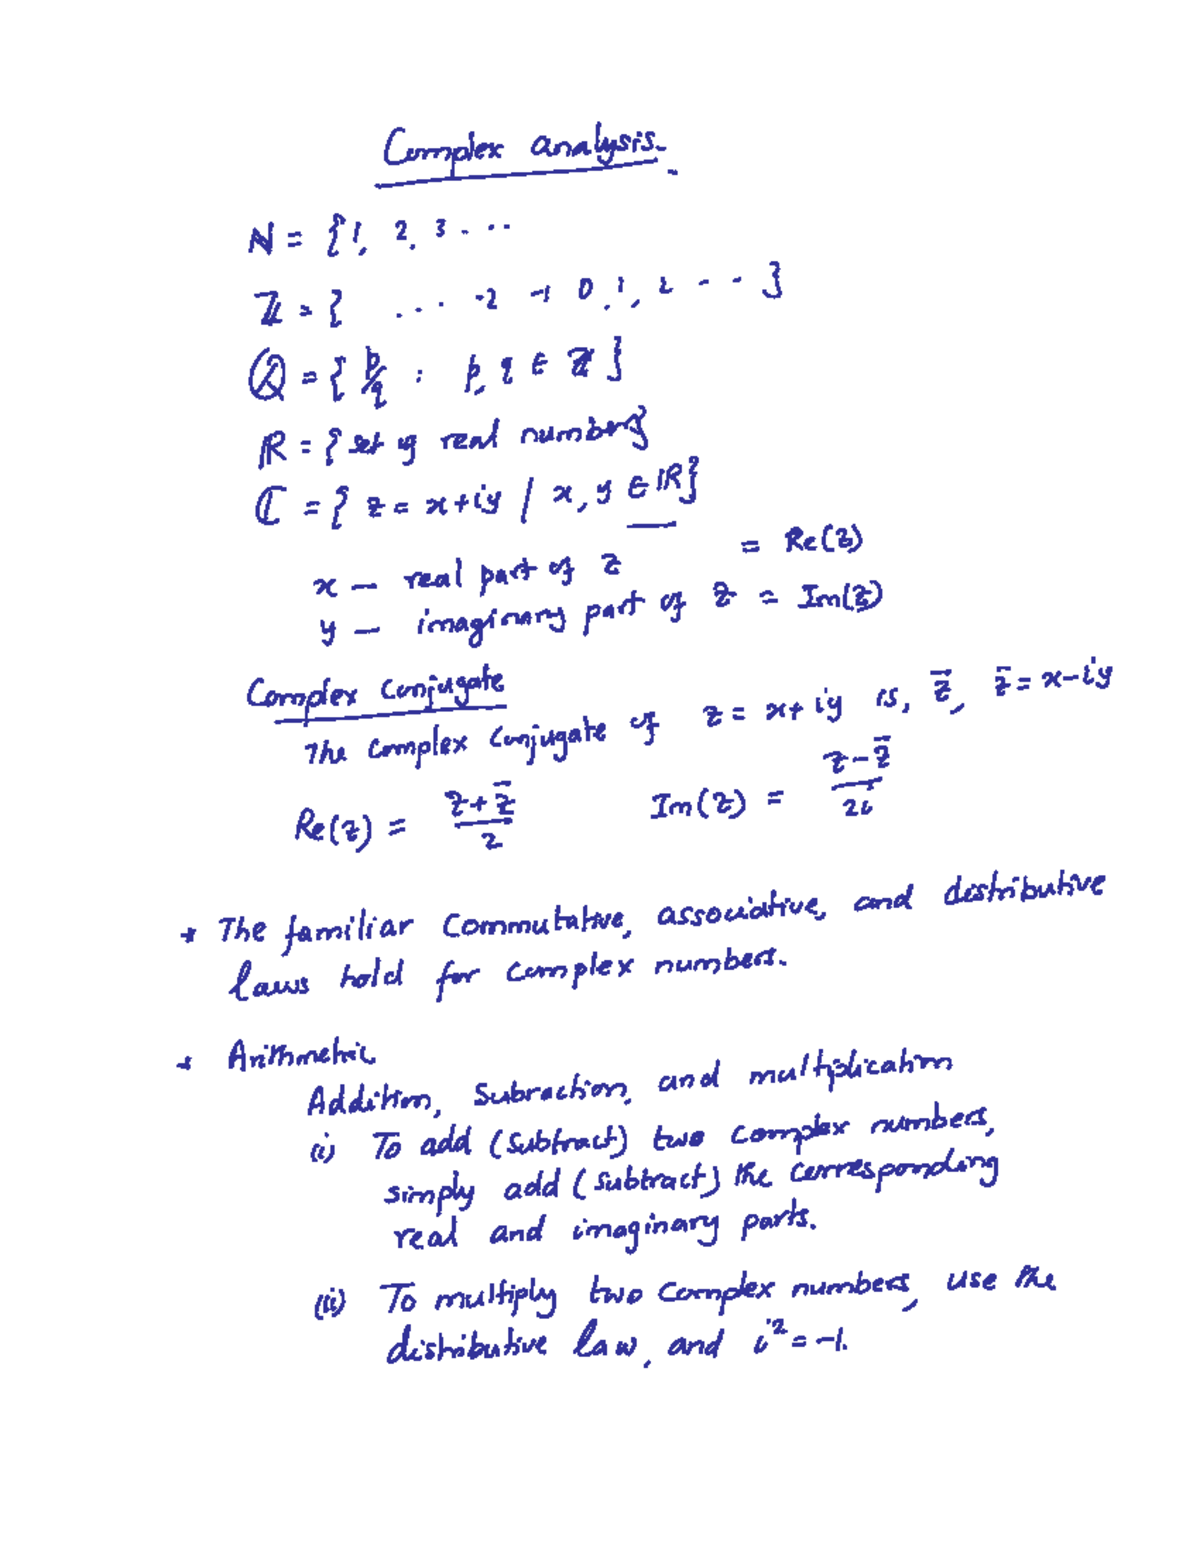 Complex analysis.
ℕ = {1, 2, 3 ....
ℤ = { ... -2 -1 0, 1, 2 ... }
ℚ = { p/q : p, q ∈ ℤ }
ℝ = { set of real numbers}
ℂ = { z = x+iy / x, y ∈ ℝ}
x — real part of z = Re(z)
y — imaginary part of z = Im(z)
Complex Conjugate
The Complex Conjugate of z = x+iy is, z̄, z̄ = x-iy
Re(z) = (z+z̄)/2 Im(z) = (z-z̄)/2i
* The familiar Commutative, associative, and distributive
laws hold for complex numbers.
* Arithmetic
Addition, Subraction, and multiplication
(i) To add (subtract) two complex numbers,
simply add (subtract) the corresponding
real and imaginary parts.
(ii) To multiply two complex numbers, use the
distributive law, and i² = -1.